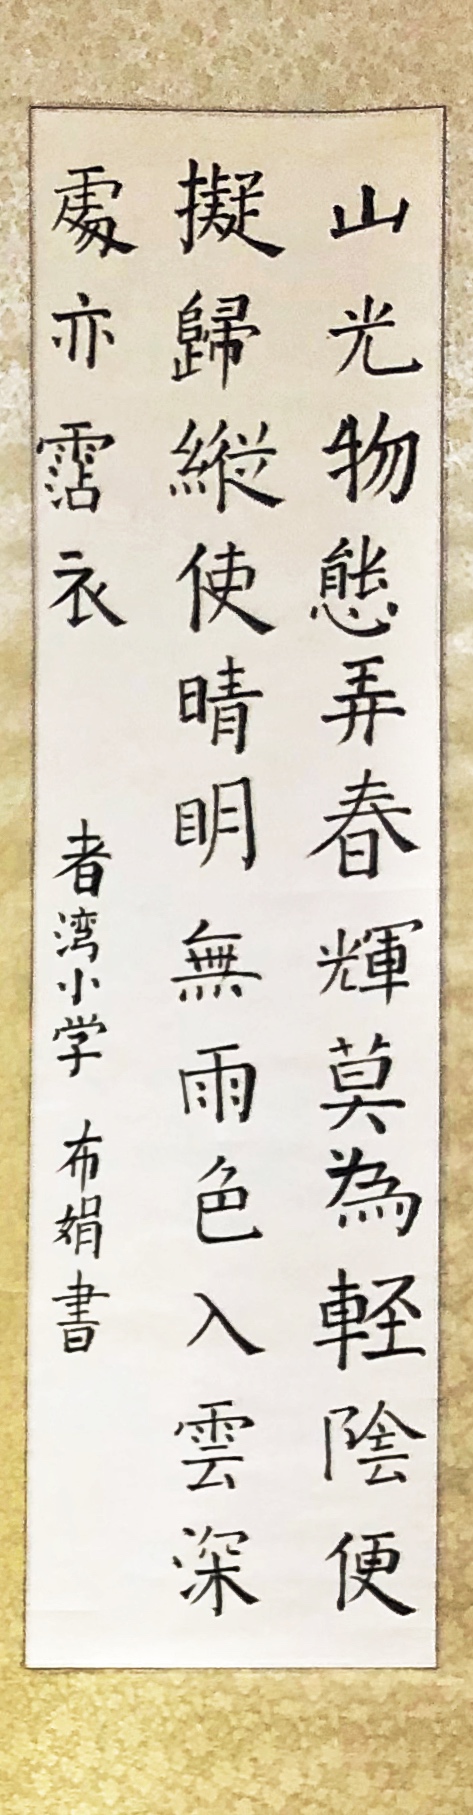 山光物態弄春輝莫為輕陰便
擬歸縱使晴明無雨色入雲深
處亦霑衣
者湾小学 布娟書